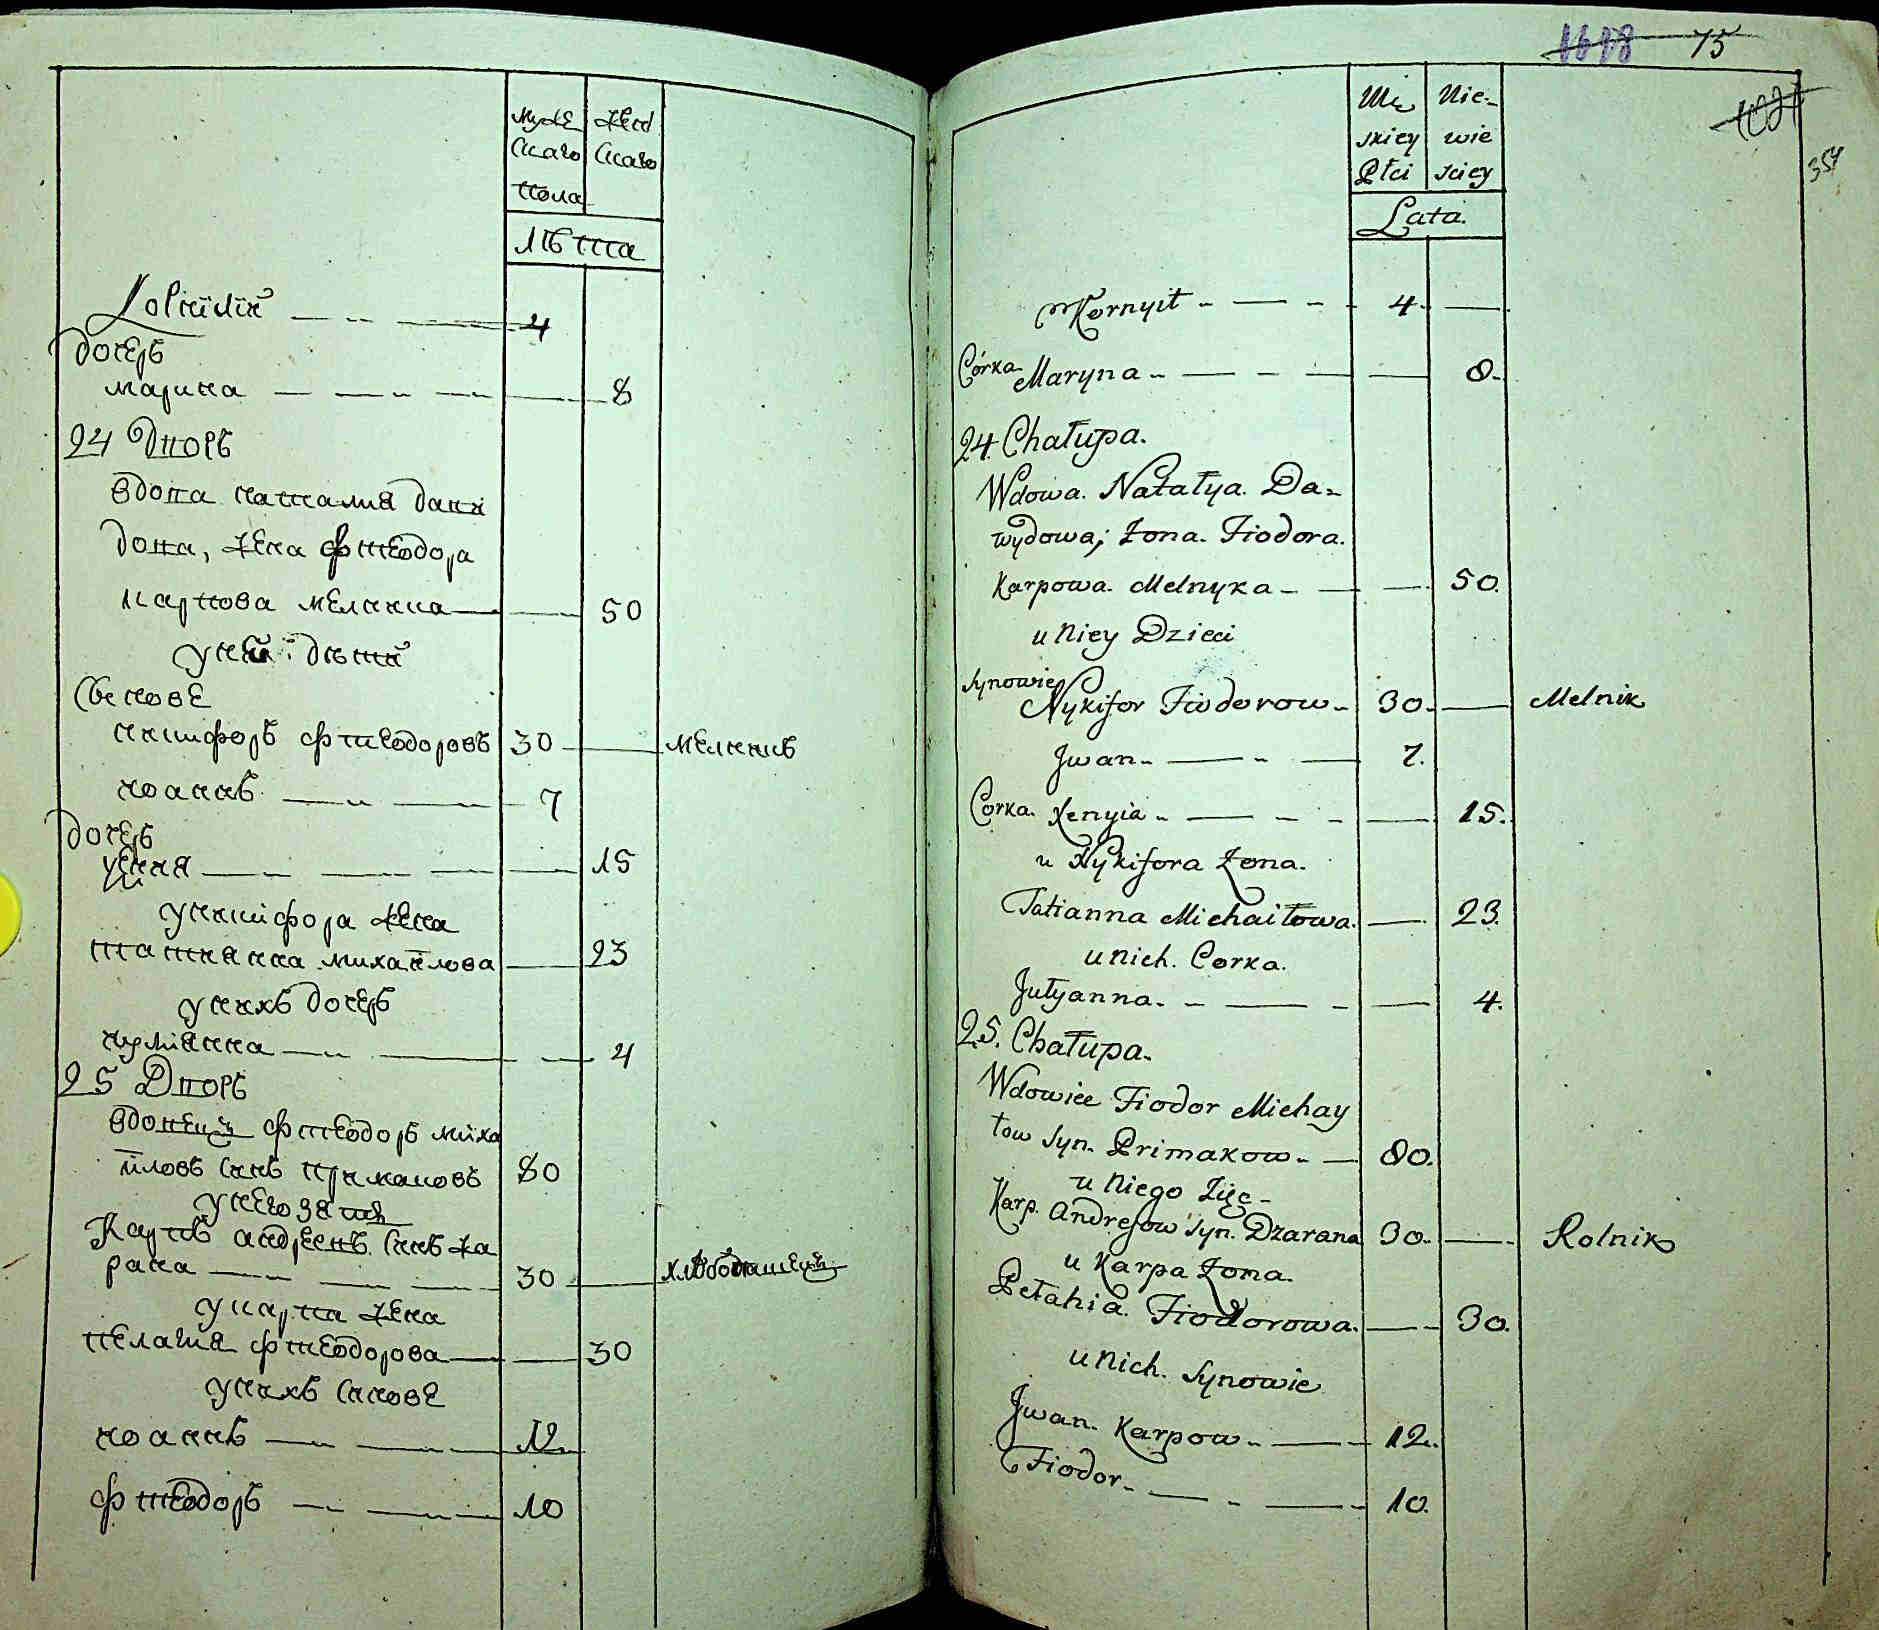 Муже
скаго
пола
Жен
скаго
Лѣта
Корнилий 4
дочерь
марина 8
24 Дворъ
вдова наталия дави
дова, жена фтеодора
карпова мелника 50
у ней дѣти
Сынове
никифоръ фтеодоровъ 30 мелникъ
иоаннъ 7
дочерь
ксения 15
у никифора жена
татиянна михайлова 23
у нихъ дочерь
иулиянна 4
25 Дворъ
вдовецъ фтеодоръ миха
йловъ синъ примаковъ 80
у него зять
Карпъ андреевъ синъ жа
рана 30 хлѣбопашецъ
у карпа жена
пелагия фтеодорова 30
у нихъ синове
иоаннъ 12
фтеодоръ 10
1618 75
354
Mę
skiey
Płci
Nie-
wie
sciey
Lata.
Kornyił 4.
Córka Maryna 8.
24. Chałupa.
Wdowa. Natałya. Da-
wydowa; Żona. Fiodora.
Karpowa. Melnyka 50.
u Niey Dzieci
Synowie
Nykifor Fiodorow 30. Melnik
Jwan 7.
Corka. Xenyia 15.
u Nykifora Żona.
Tatianna Michaiłowa. 23.
u nich. Corka.
Jułyanna. 4.
25. Chałupa.
Wdowiec Fiodor Michay
łow Syn. Primakow 80.
u Niego Zięc
Karp. Andrejow Syn. Dzarana 30. Rolnik
u Karpa Żona.
Pełahia. Fiodorowa. 30.
u nich. Synowie
Jwan. Karpow 12.
Fiodor 10.